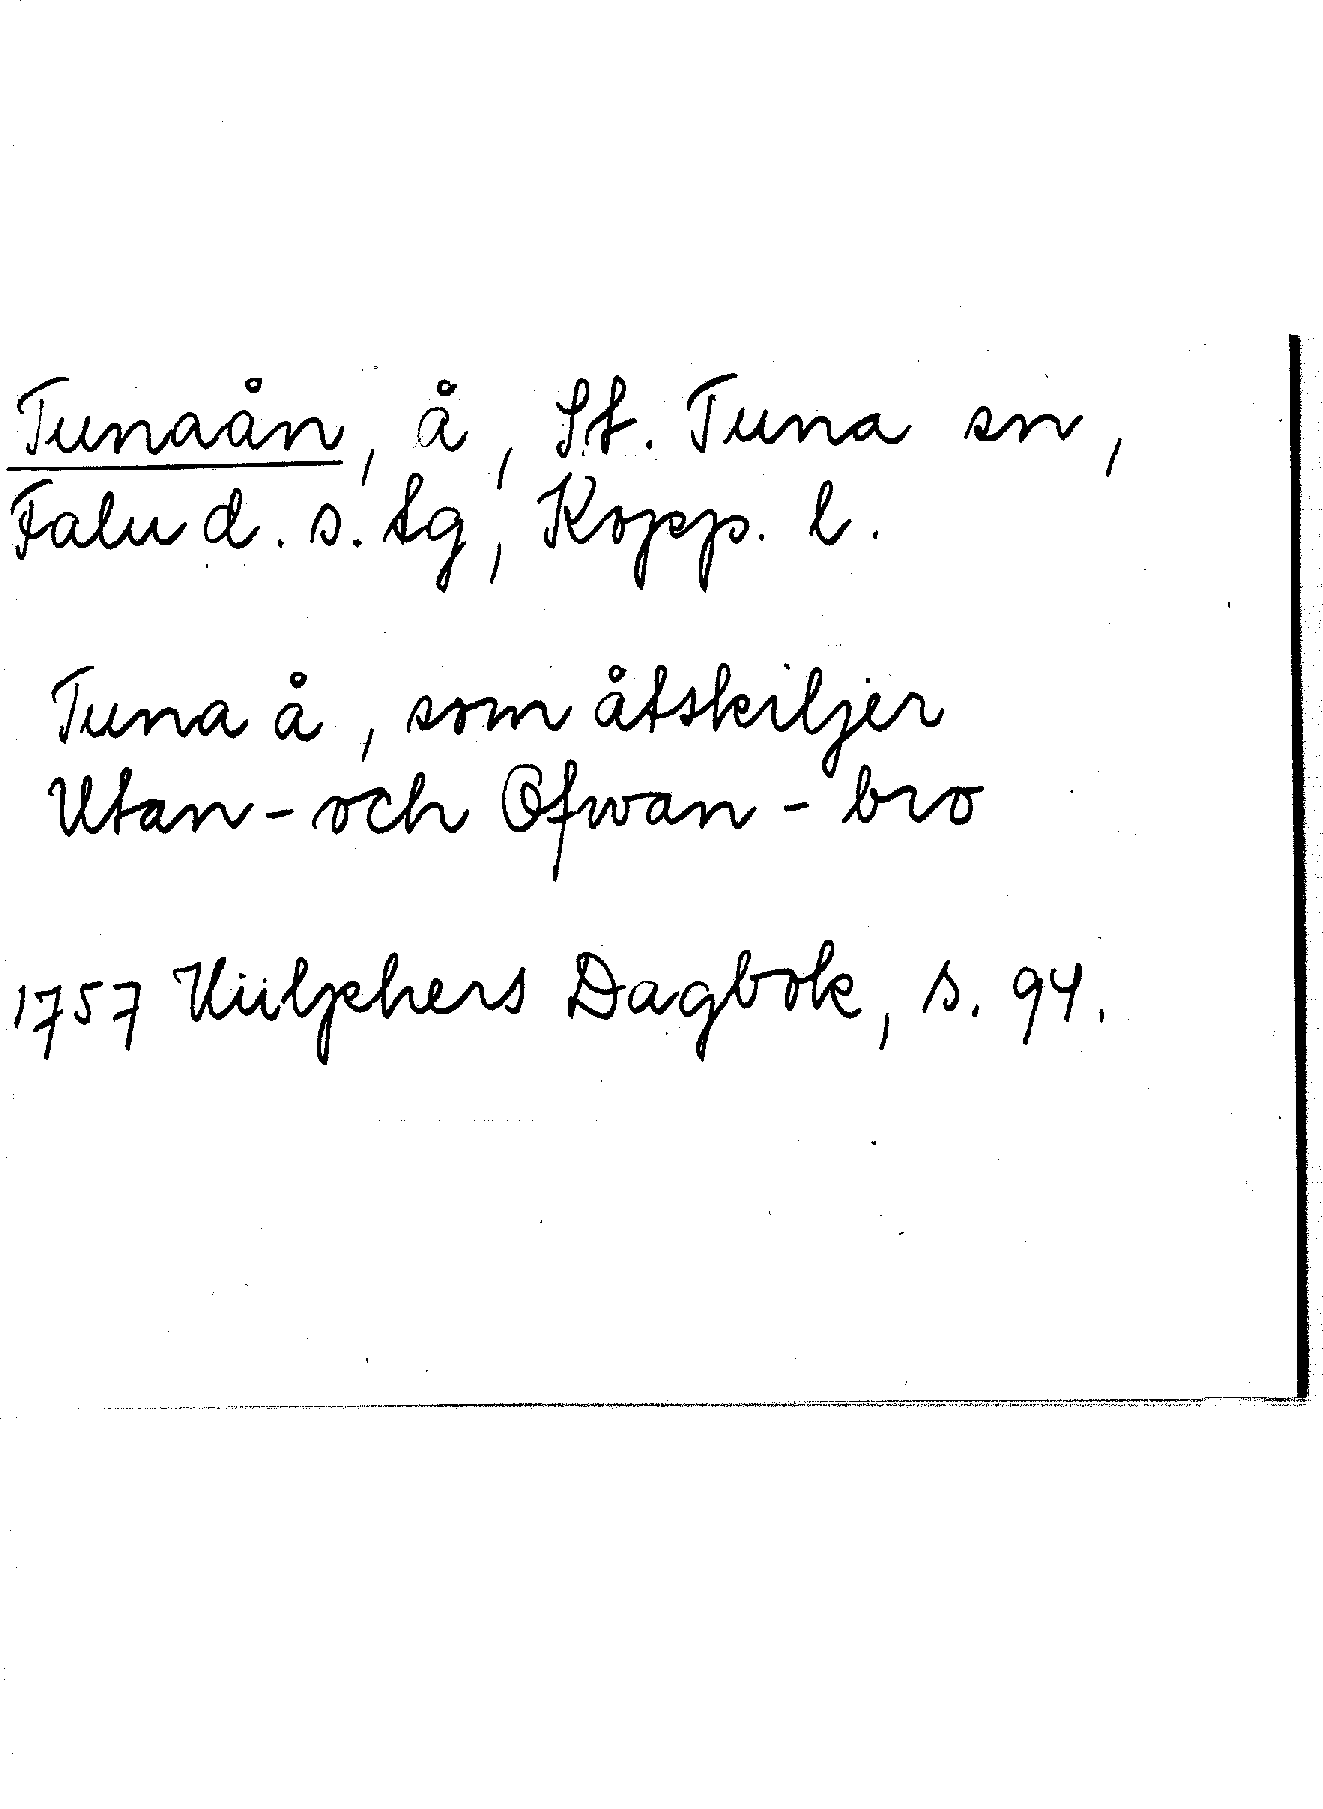 Tunaån, å, St. Tuna sn,
Falu d. s. tg, Kopp. l.
Tuna å, som åtskiljer
Utan- och Ofwan-bro
1757 Hülphers Dagbok, s. 94.